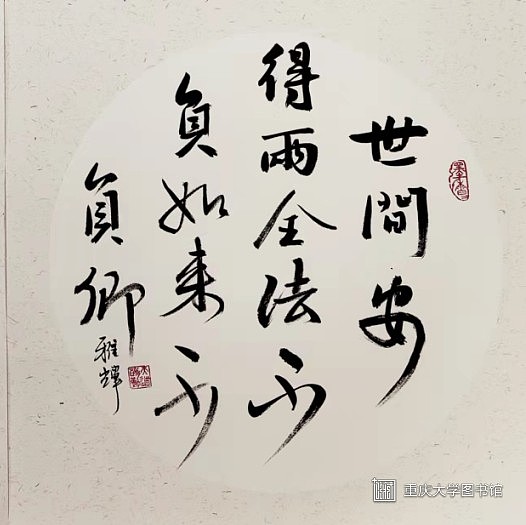 世間安
得兩全法不
負如来不
負卿
雅輝
重庆大学图书馆